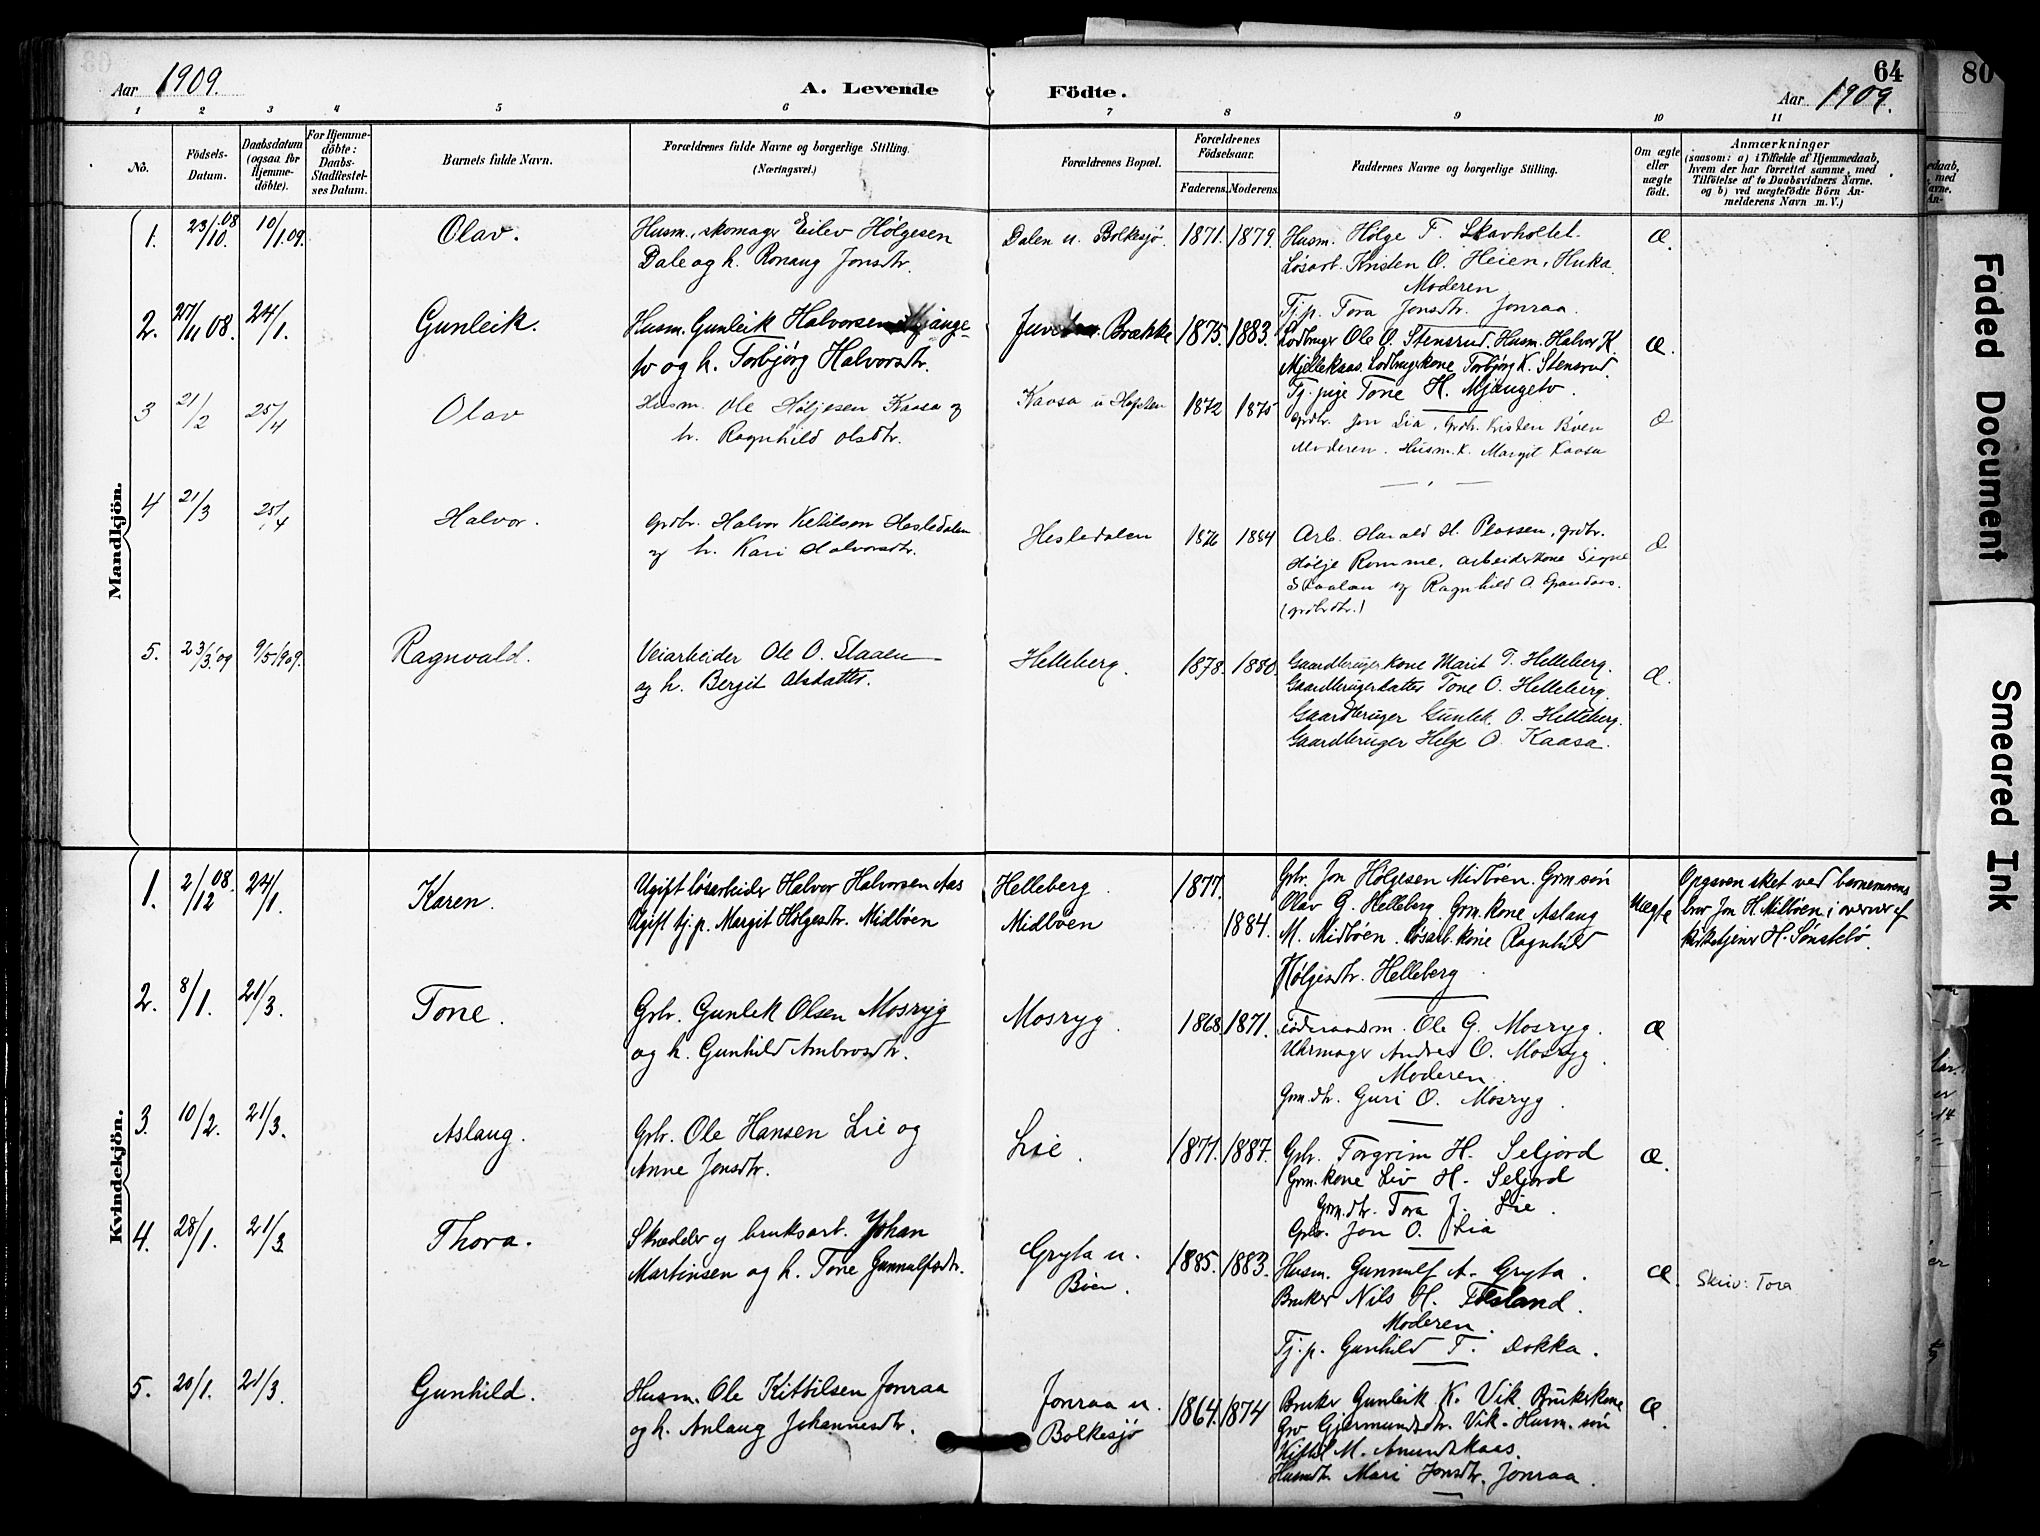 64
80
Aar 1909.
A. Levende
Födte.
Aar 1909.
1 2 3 4 5 6 7 8 9 10 11
No.
Födsels-
Datum.
Daabsdatum
(ogsaa for
Hjemme-
döbte).
For Hjemme-
döbte:
Daabs-
Stadfæstel-
ses Datum.
Barnets fulde Navn.
Forældrenes fulde Navne og borgerlige Stilling.
(Næringsvei.)
Forældrenes Bopæl.
Forældrenes
Födselsaar.
Faderens. Moderens.
Faddernes Navne og borgerlige Stilling.
Om ægte
eller
uægte
födt.
Anmærkninger
(saasom: a) i Tilfælde af Hjemmedaab,
hvem der har forrettet samme, med
Tilföielse af to Daabsvidners Navne,
og b) ved uægtefödte Börn An-
melderens Navn m. V.)
Mandkjön.
1. 23/10.08 10/1.09. Olav.
Husm., skomager Eilev Hølgesen
Dale og h. Ronaug Jonsdtr.
Dalen u. Bolkesjø. 1871. 1879.
Husm. Hølge T. Skavholtet.
Løsarb. Kristen O. Heien, Huka.
Moderen
Tj.p. Tora Jonsdtr. Jonraa.
Æ.
2. 27/11 08. 24/1. Gunleik.
Husm. Gunleik Halvorsen Mjange-
to og h. Torbjørg Halvorsdtr.
Brække 1875. 1883.
Lodbruger Ole O. Stensrud. Husm. Halvor K
Mjellekaas. Lodbrugerkone Torbjørg K. Stensrud.
Tj. pige Tone H. Mjangeto.
Æ.
3 21/2 25/4 Olav
Husm. Ole Høljesen Kaasa og
h. Ragnhild Olsdtr.
Kaasa u 1872 1875
Grdbr. Jon Lia, Grdbr. Kristen Bøen
Moderen. Husm.k. Margit Kaasa
Æ
4 21/3 25/4 Halvor.
Grdbr. Halvor Ketilson Hesledalen
og h. Kari Halvorsdtr.
Hesledalen 1876 1884
Arb. Harald H. Plassen, grdbr.
Hølje Romme, arbeiderkone Signe
Staalan og Ragnhild O. Grandaas.
(grdbrdtr.)
Æ
5. 23/3.09 9/5 1909. Ragnvald.
Veiarbeider Ole O. Slaaen
og h. Bergit Olsdatter.
Helleberg. 1878. 1880.
Gaardbrugerkone Marit T. Helleberg.
Gaardbrugerdatter Tone O. Helleberg.
Gaardbruger Gunlek O. Helleberg.
Gaardbruger Helge O. Kaasa.
Æ.
Kvindekjön.
1. 2/12 08. 24/1. Karen.
Ugift løsarbeider Halvor Halvorsen Aas
Ugift tj. p. Margit Hølgesdtr. Midbøen
Helleberg
Midbøen
1877.
1884.
Grbr. Jon Hølgesen Midbøen. Grm.søn
Olav G. Helleberg. Grm.kone Aslaug
M. Midbøen. Løsarb.kone Ragnhild
Hølgesdtr. Helleberg.
Uægte
Opgaven sket ved barnemorens
bror Jon H. Midbøen i overvær af
kirketjener H. Sønstebø.
2. 8/1. 21/3. Tone.
Grbr. Gunlek Olsen Mosryg
og h. Gunhild Ambrosdtr.
Mosryg. 1868. 1871.
Føderaadsm. Ole G. Mosryg.
Uhrmager Andres O. Mosryg.
Moderen.
Grm.dtr. Guri O. Mosryg.
Æ
3. 10/2. 21/3. Aslaug.
Grbr. Ole Hansen Lie og
Anne Jonsdtr.
Lie. 1877. 1887.
Grbr. Torgrim H. Seljord
Grm.kone Liv H. Seljord
Grm.dtr. Tora J. Lie.
Grbr. Jon O. Lia
Æ.
4. 28/1. 21/3. Thora.
Skrædder og bruksarb. Johan
Martinsen og h. Tone Gunnulfsdtr.
Gryta u.
Bøen. 1885. 1883.
Husm. Gunnulf A. Gryta.
Bruker Nils H. Fosland.
Moderen.
Tj.p. Gunhild T. Dokka.
Æ.
Skriv: Tora
5. 20/1. 21/3. Gunhild.
Husm. Ole Kittilsen Jonraa
og h. Anlaug Johannesdtr.
Jonraa u.
Bolkesjø 1864. 1874
Bruker Gunleik K. Vik. Brukerkone
Gro Gjermundsdtr. Vik. Husm.søn
Kittil M. Amundskaas.
Husmdtr. Mari Jonsdtr. Jonraa.
Æ.
Faded Document
Smeared Ink